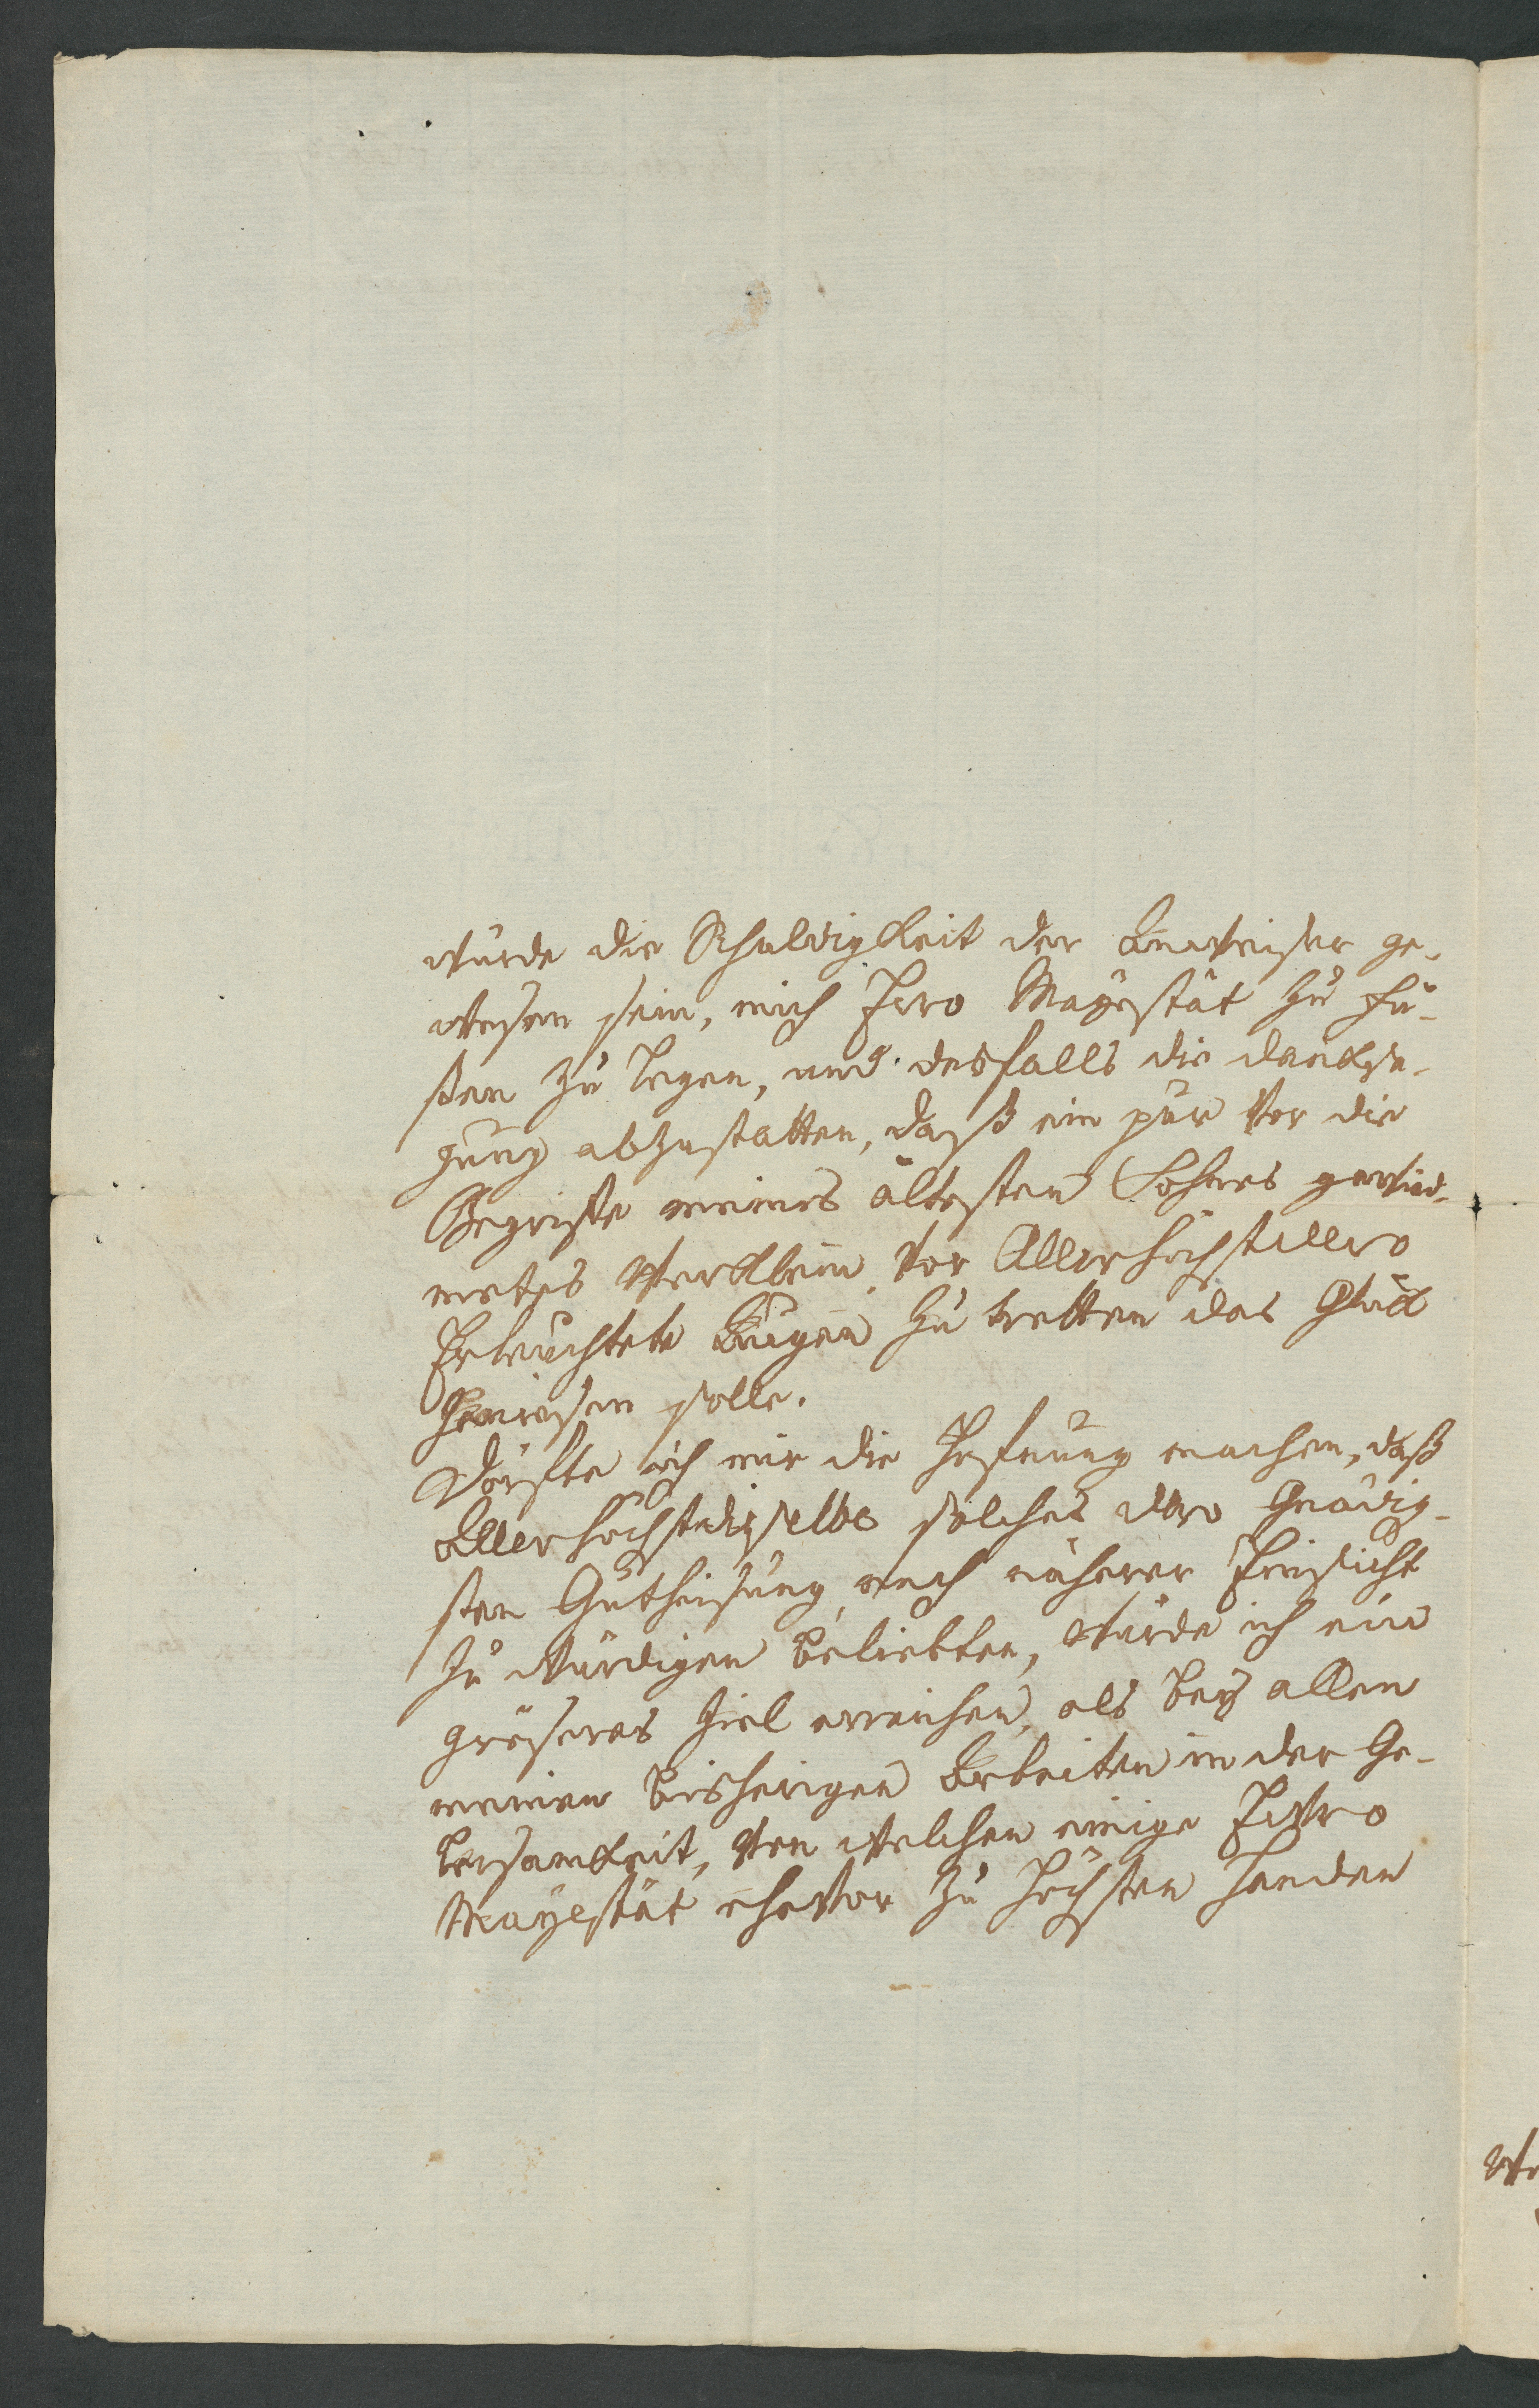 würde die Schuldigkeit der Anweiser ge-
wesen sein, mich Ihro Mayestät zu Fü-
ßen zu legen, und desfalls die Danksa-
gung abzustatten, daß ein pur vor die
Begriffe meines ältesten Sohnes gewid-
metes Werklein vor Allerhöchst dero
Erleuchtete Augen zu tretten das Glück
Geniesen solle.
Dörffte ich mir die Hofnung machen, daß
Allerhöchstdieselbe solches dero Gnädig-
sten Gutheisung nach näherer Einsicht
zu würdigen beliebten, würde ich ein
gröseres Ziel erreichen, als bey allen
meinen bisherigen Arbeiten in der Ge-
lersamkeit, von welchen einige Ihro
Mayestät ehevor zu Höchsten Handen